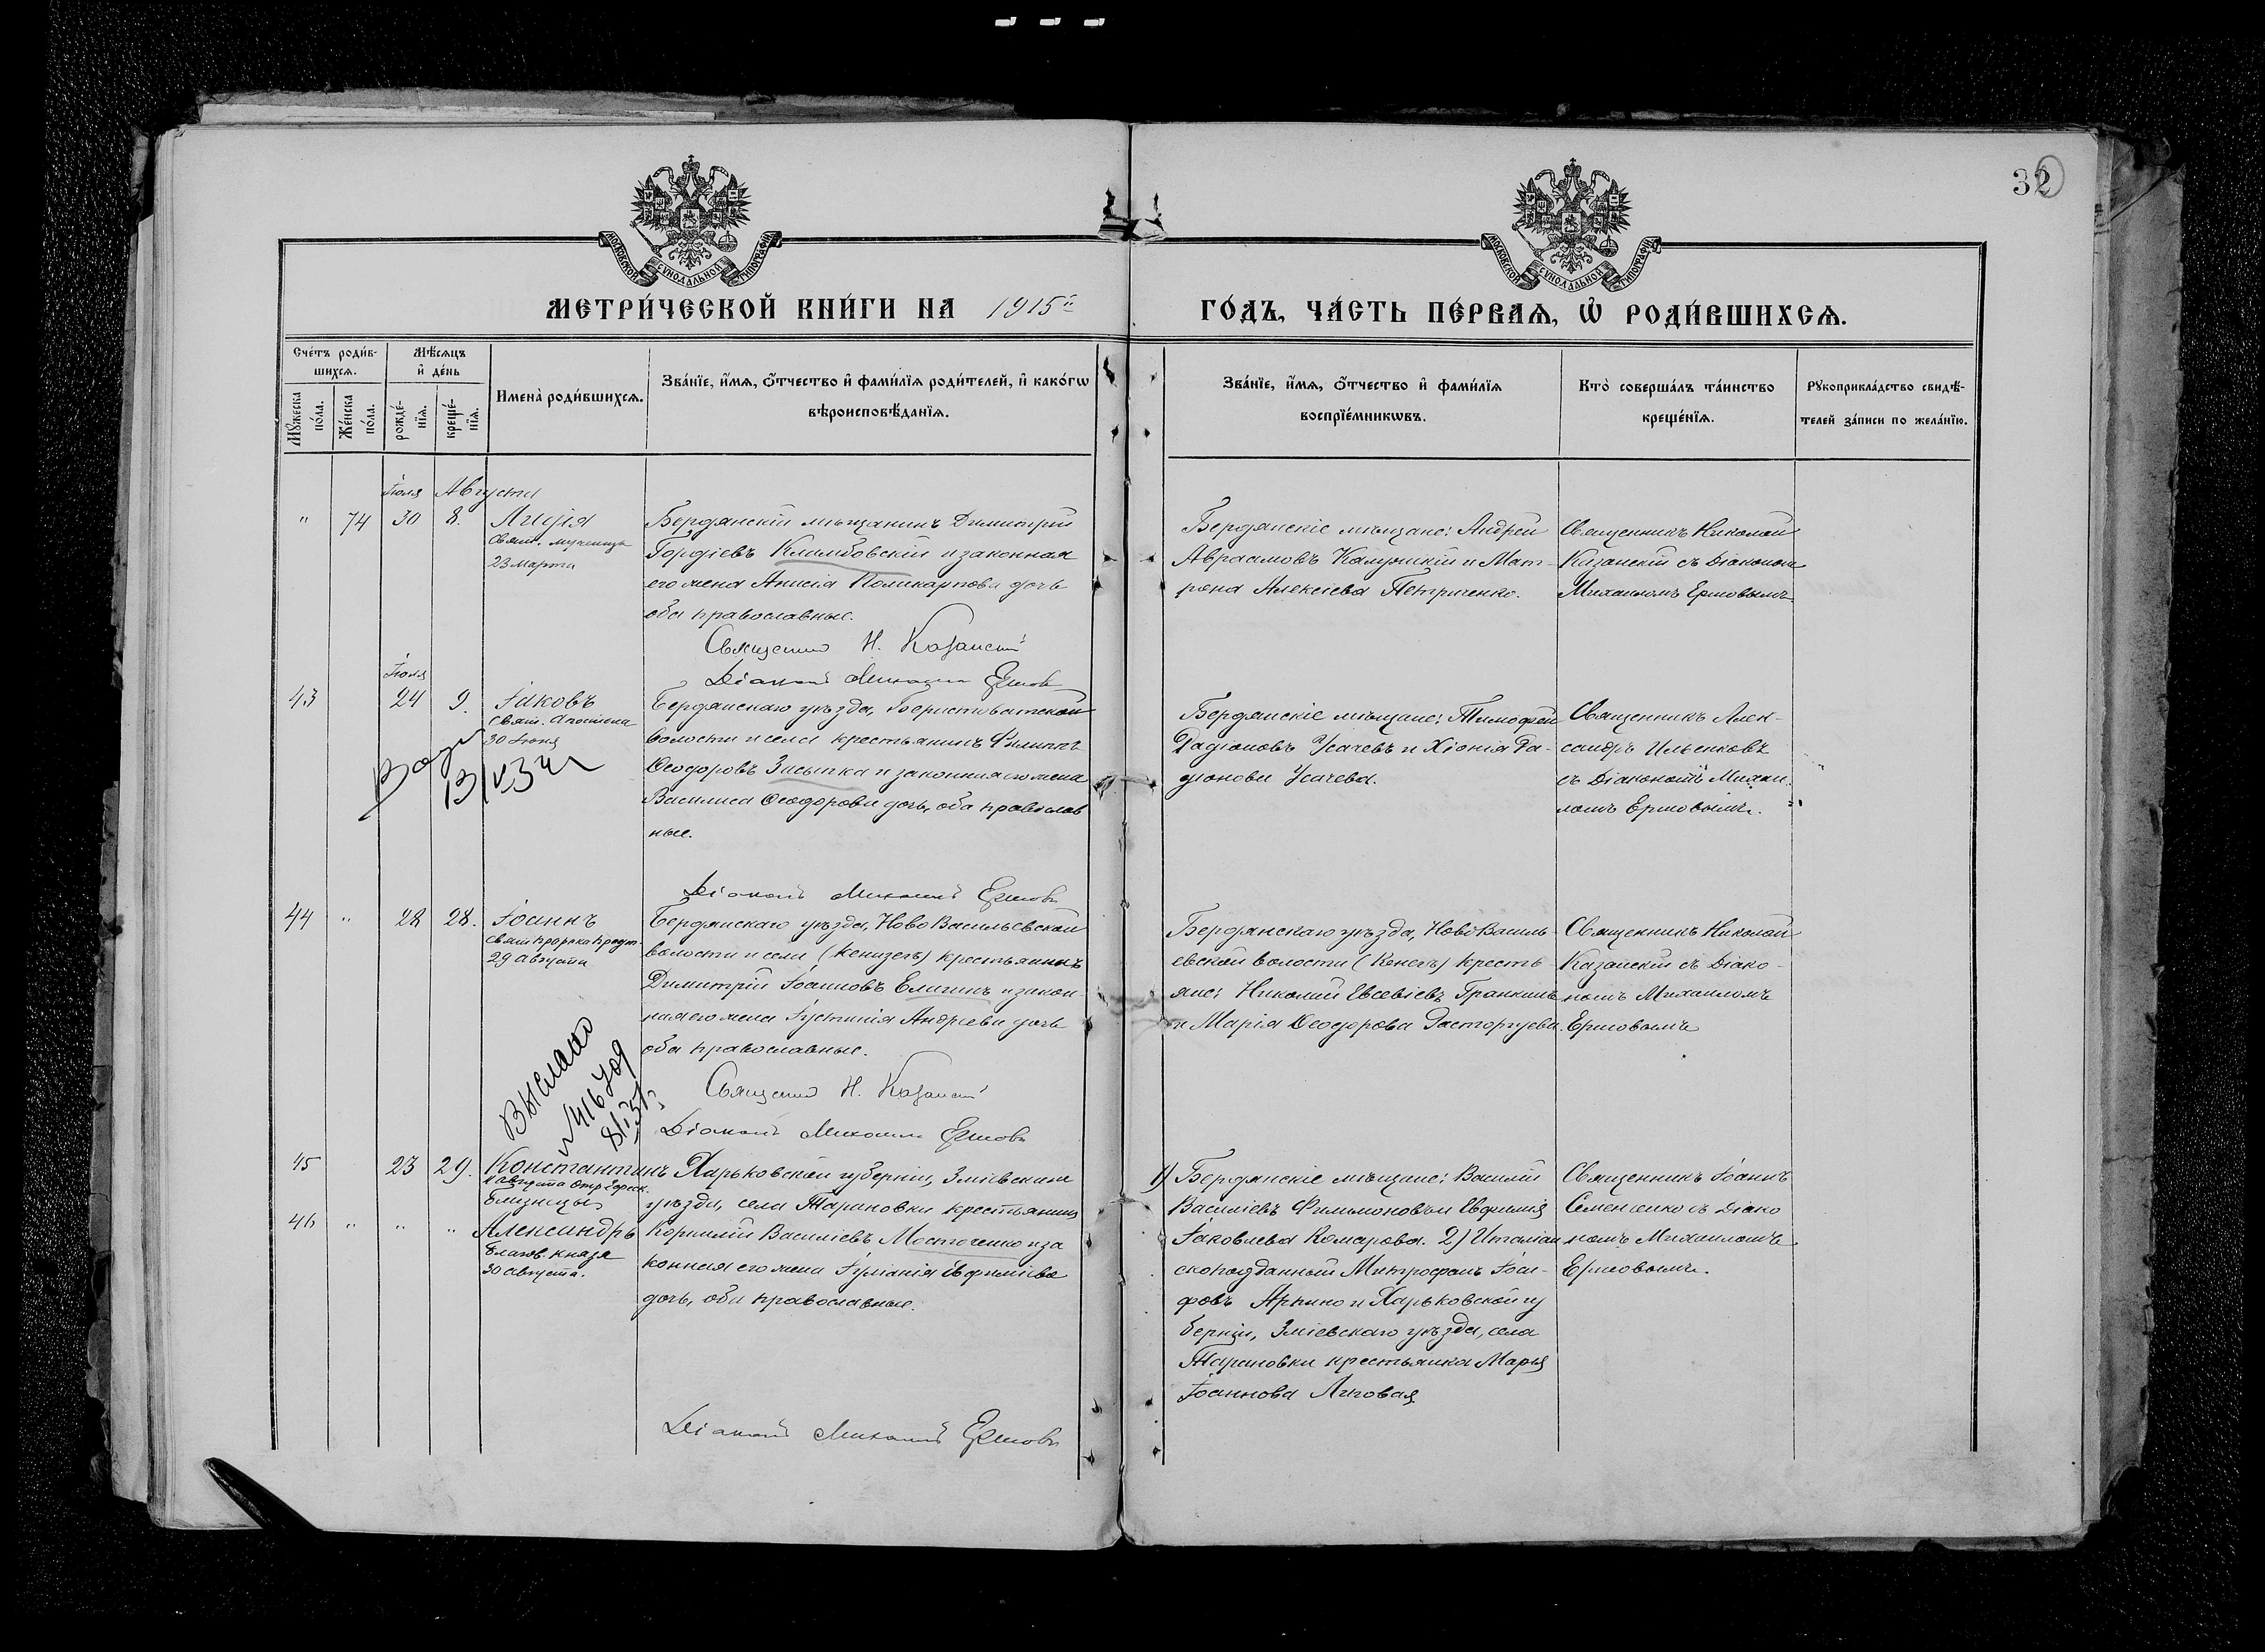 32
МОСКОВСКОЙ СѴНОДАЛЬНОЙ ТИПОГРАФІИ
МОСКОВСКОЙ СѴНОДАЛЬНОЙ ТИПОГРАФІИ
МЕТРИ́ЧЕСКОЙ КНИ́ГИ НА 1915й
ГО́ДЪ, ЧА́СТЬ ПЕ́РВАѦ, Ѡ҆ РОДИ́ВШИХСѦ.
Сче́тъ роди́в-
шихсѧ.
Мꙋ́жеска по́ла.
Же́нска по́ла.
Мѣ́сѧцъ
и҆ де́нь
рожде́-
нїѧ.
креще́-
нїѧ.
Имена̀ роди́вшихсѧ.
Зва́нїе, и҆́мѧ, ѻ҆́тчество и҆ фами́лїѧ роди́телей, и҆ како́гѡ
вѣроисповѣ́данїѧ.
Зва́нїе, и҆́мѧ, ѻ҆́тчество и҆ фами́лїѧ
воспрїе́мникѡвъ.
Кто̀ соверша́лъ та́инство
креще́нїѧ.
Рꙋкоприкла́дство свидѣ́-
телей за́писи по жела́нїю.
Іюля Августа
" 74 30 8. Лидія
Свят. мученицы
23 марта
Бердянскій мѣщанинъ Димитрій
Гордіевъ Климбовскій и законная
его жена Анисія Поликарпова дочь
оба православные.
Священник Н. Казанскій
Діаконъ Михаилъ Ершовъ
Бердянскіе мѣщане: Андрей
Авраамовъ Калужскій и Мат-
рона Алексіева Петриченко.
Священникъ Николай
Казанскій съ Діакономъ
Михаиломъ Ершовымъ.
Іюля
43 24 9. Іаковъ
Свят. Апостола
30 Іюня
Бердянскаго уѣзда, Берестоватской
волости и села крестьянинъ Филиппъ
Ѳеодоровъ Засыпка и законная его жена
Василиса Ѳеодорова дочь, оба православ
ные.
Діаконъ Михаилъ Ершовъ
Бердянскіе мѣщане: Тимофей
Радіоновъ Усачевъ и Хіонія Ра-
діонова Усачева.
Священникъ Алек-
сандръ Ильенковъ
съ Діакономъ Михаи-
ломъ Ершовымъ.
44 " 28 28. Іоаннъ
Свят. Пророка Предт.
29 августа
Бердянскаго уѣзда, Ново Васильевской
волости и села крестьянинъ
Димитрій Іоанновъ Елагинъ и закон-
ная его жена Іустинія Андреева дочь
оба православные.
Священник Н. Казанскій
Діаконъ Михаилъ Ершовъ
Бердянскаго уѣзда, Ново Василь-
евской волости кресть-
яне: Николай Евсевіевъ Гранкинъ
и Марія Ѳеодорова Расторгуева.
Священникъ Николай
Казанскій съ Діако-
номъ Михаиломъ
Ершовымъ
Выслано
45 23 29. Константинъ
1 августа
Близнецы
Харьковской губерніи, Зміевскаго
уѣзда, села Тарановки крестьянинъ
46 " " " Александръ
Благов. князя
30 августа.
Корнилій Василіевъ Мосточенко и за
конная его жена Іуліанія Евфиміева
дочь, оба православные.
Діаконъ Михаилъ Ершовъ
1) Бердянскіе мѣщане: Василій
Василіевъ Филимоновъ и Евфимія
Іаковлева Комарова. 2) Италіан
скоподданный Митрофанъ Іоси-
фовъ Арпино и Харьковской гу
берніи, Зміевскаго уѣзда, села
Тарановки крестьянка Марія
Іоаннова Липовая
Священникъ Іоаннъ
Семененко съ Діако
номъ Михаиломъ
Ершовымъ.